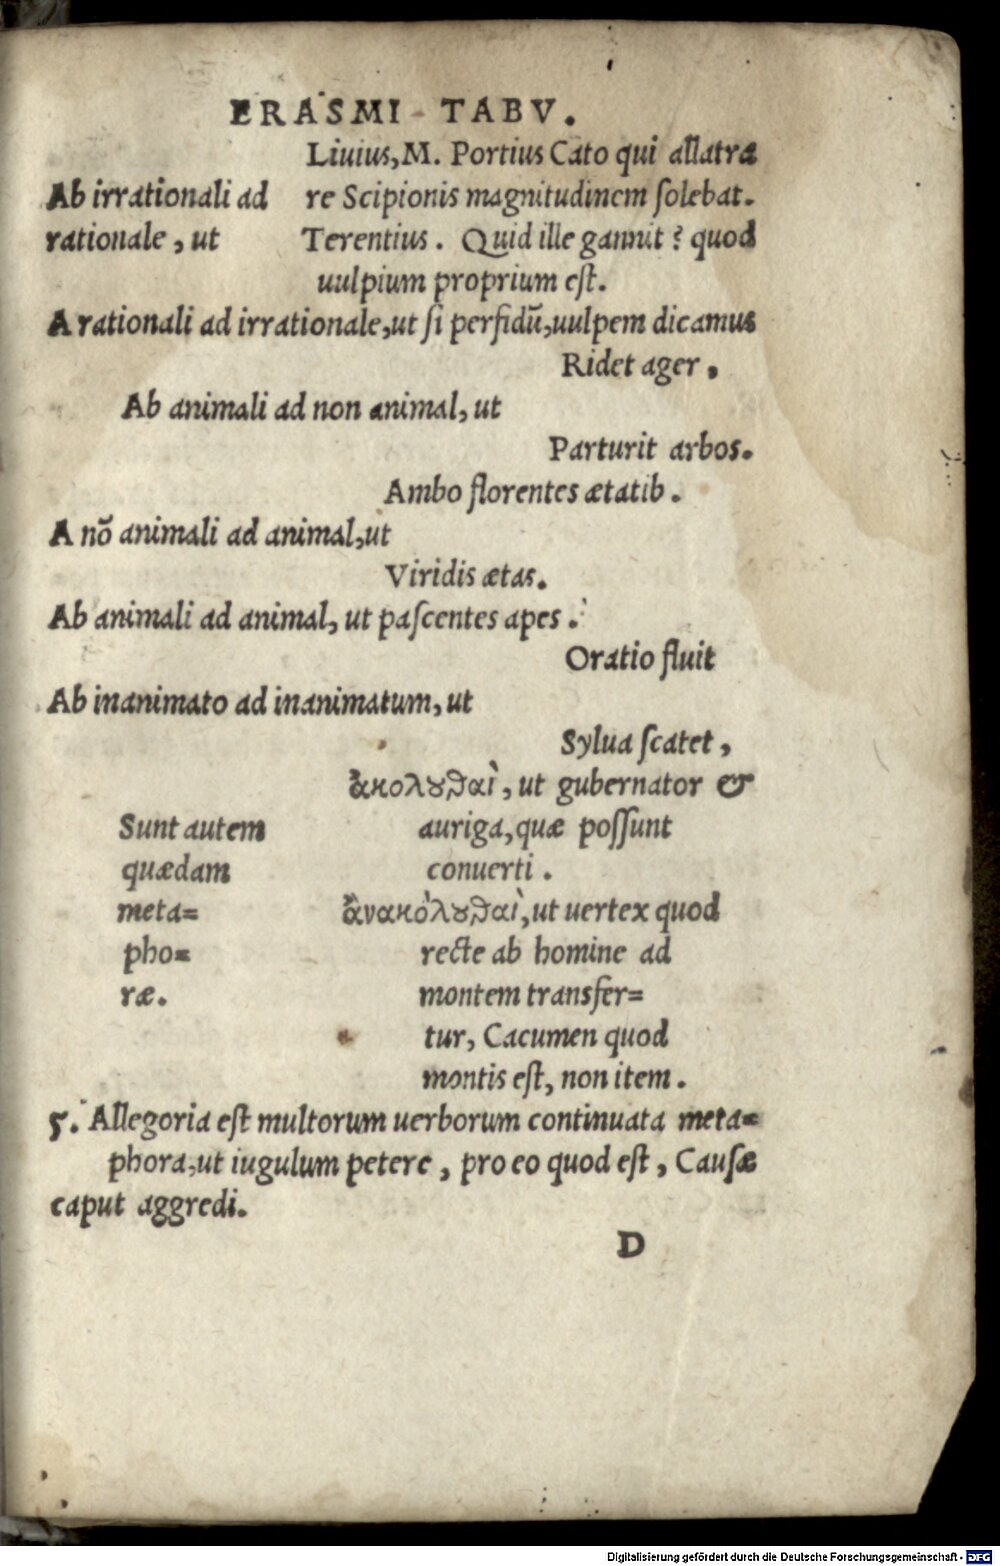 ERASMI TABV.
Liuius, M. Portius Cato qui allatra
Ab irrationali ad re Scipionis magnitudinem ſolebat.
rationale, ut Terentius. Quid ille gannit? quod
uulpium proprium eſt.
A rationali ad irrationale, ut ſi perfidū, uulpem dicamus
Ridet ager,
Ab animali ad non animal, ut
Parturit arbos.
Ambo florentes ætatib.
A nō animali ad animal, ut
Viridis ætas.
Ab animali ad animal, ut paſcentes apes.
Oratio fluit
Ab inanimato ad inanimatum, ut
Sylua ſcatet,
ἀκολȣθαὶ, ut gubernator &
Sunt autem auriga, quæ poſſunt
quædam conuerti.
meta= ἀνακόλȣθαὶ, ut uertex quod
pho= recte ab homine ad
ræ. montem transfer=
tur, Cacumen quod
montis eſt, non item.
5. Allegoria eſt multorum uerborum continuata meta=
phora, ut iugulum petere, pro eo quod eſt, Cauſæ
caput aggredi.
D
Digitalisierung gefördert durch die Deutsche Forschungsgemeinschaft - DFG